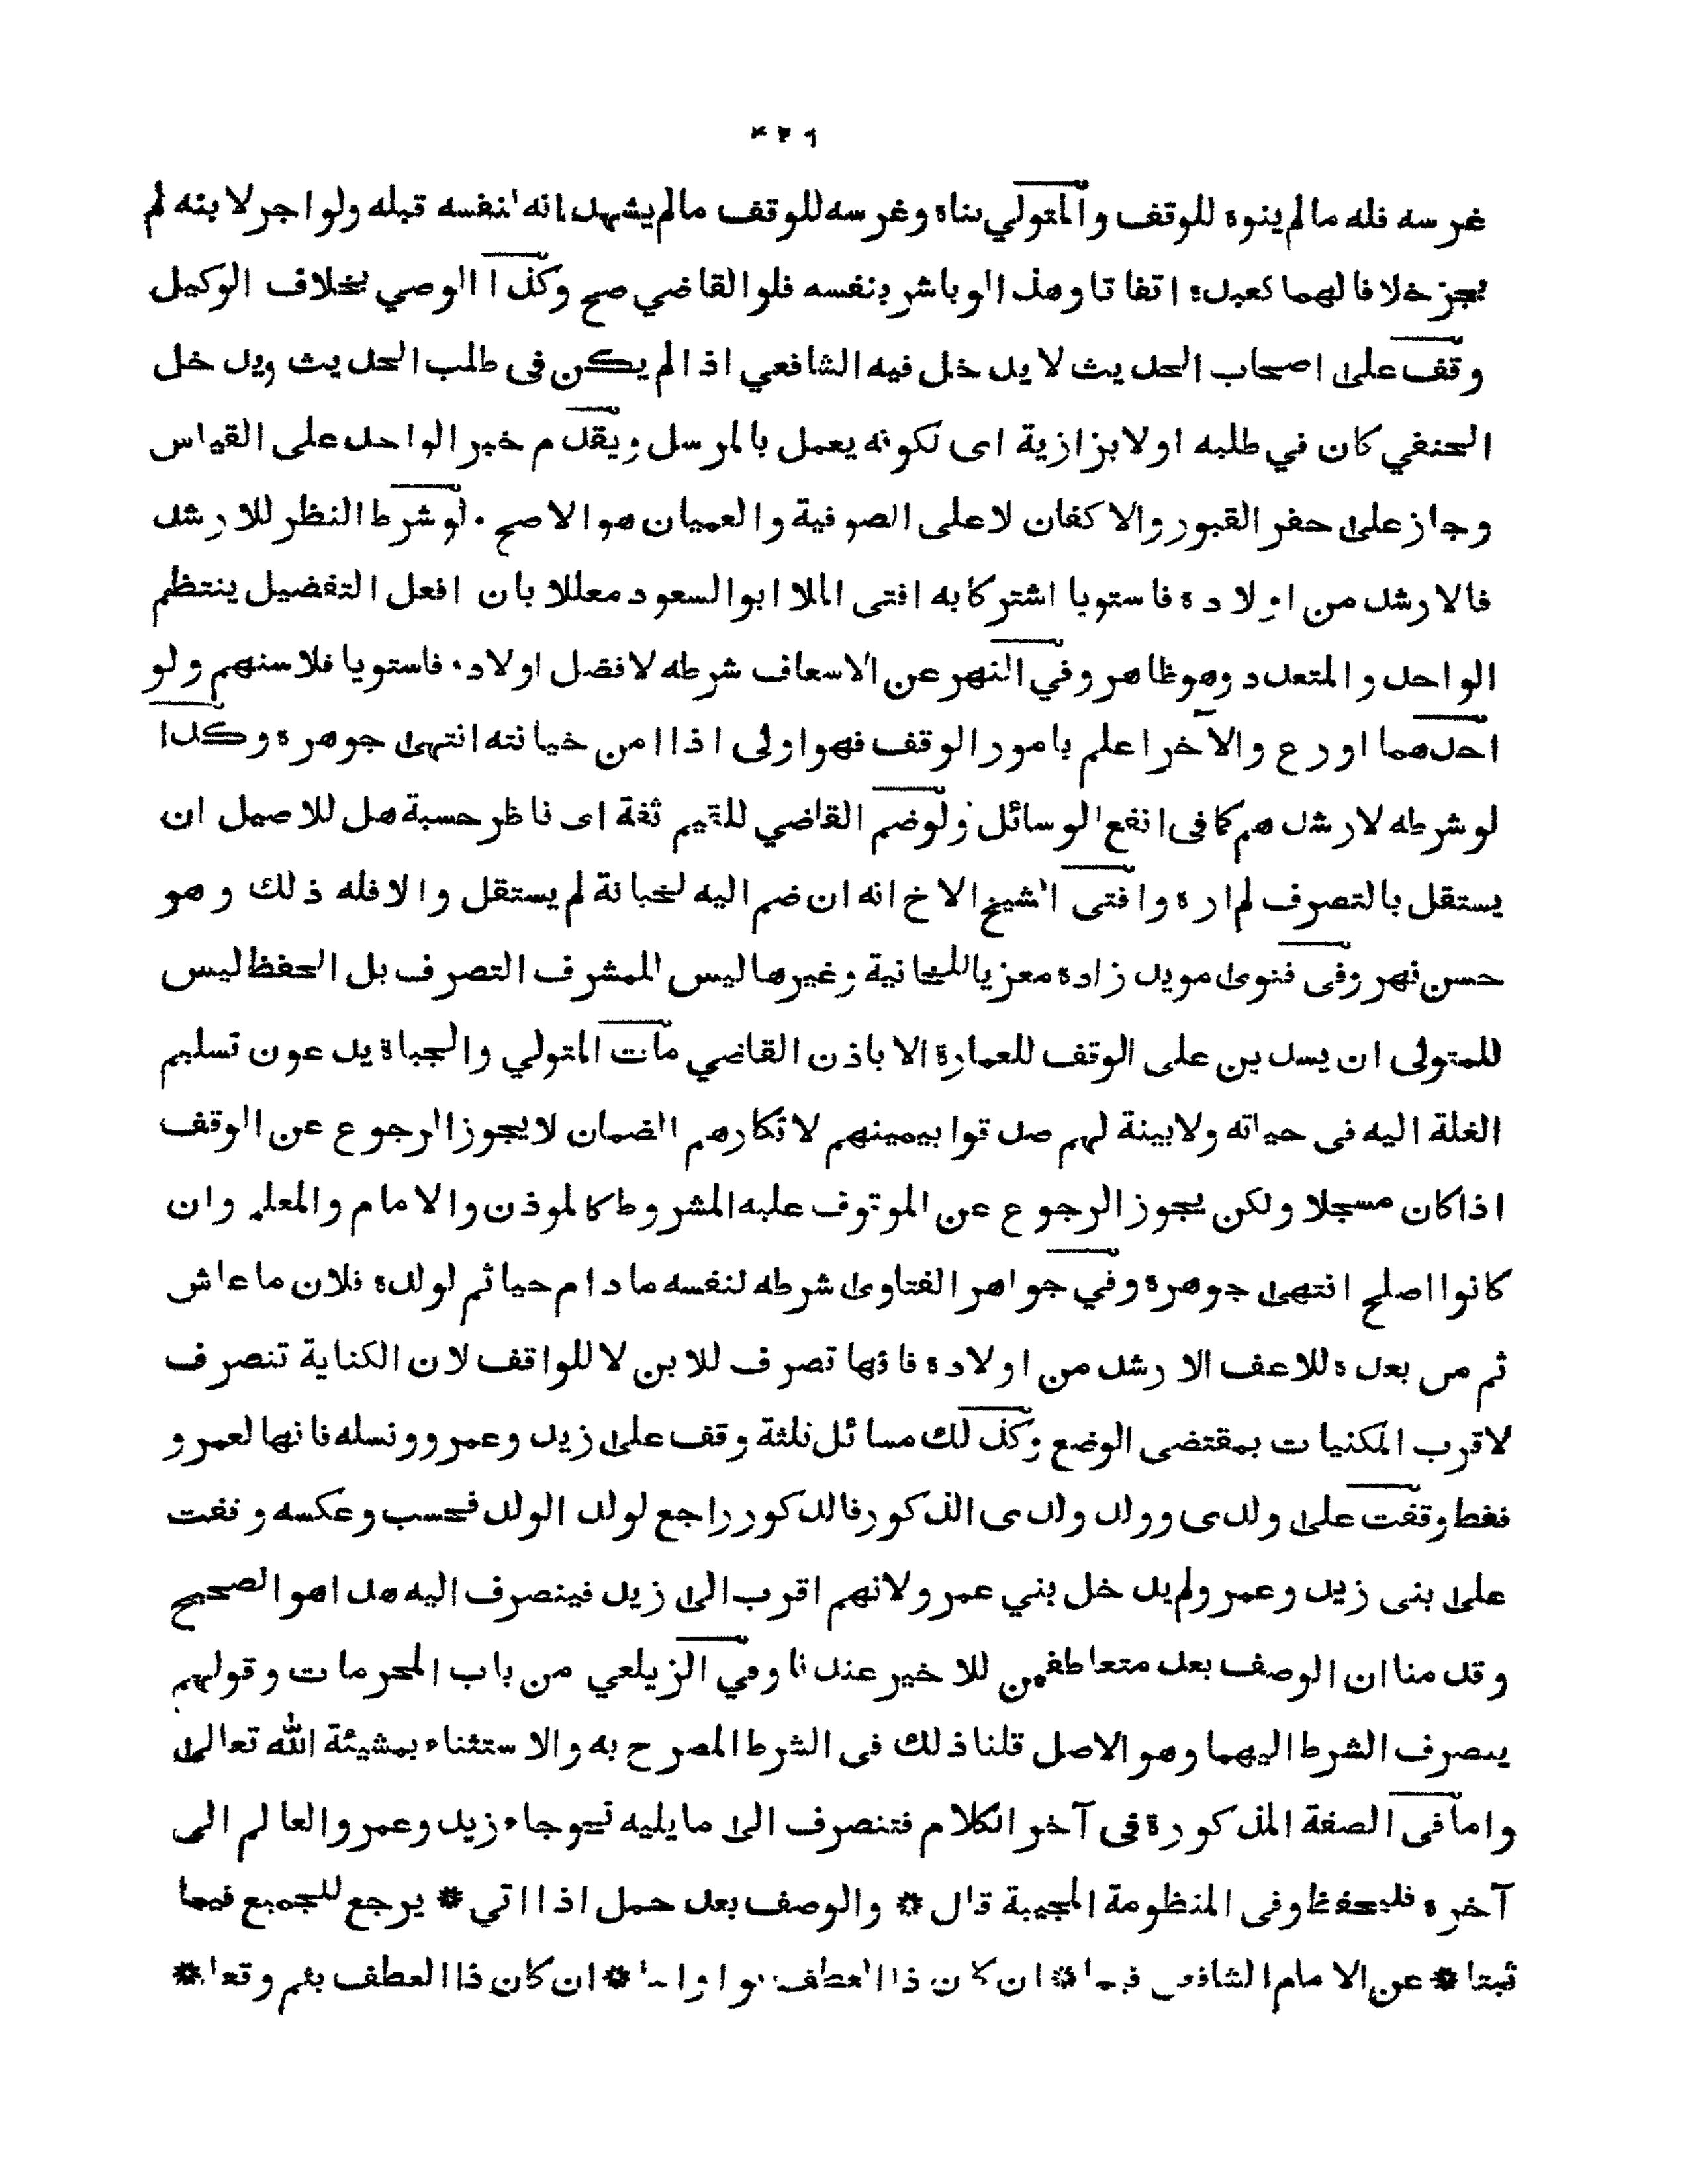 ٤٢٦
غرسه فله مالم ينوه للوقف والمتولي بناه وغرسه للوقف مالم يشهد انه لنفسه قبله ولواجر لابنه لم
يجز خلافالهما كعبده اتفاقا وهذا لو باشر بنفسه فلوالقاضي صح وكذا الوصي بخلاف الوكيل
وقف على اصحاب الحديث لا يدخل فيه الشافعي اذا لم يكن فى طلب الحديث ويدخل
الحنفي كان في طلبه اولابزازية اى لكونه يعمل بالمرسل ويقدم خبر الواحد على القياس
وجاز على حفر القبور والاكفان لاعلى الصوفية والعميان هو الاصح ٠ لو شرط النظر للارشد
فالارشد من اولاده فاستويا اشتركابه افتى الملا ابوالسعود معللا بان افعل التفضيل ينتظم
الواحد والمتعدد وهوظاهر وفي النهر عن الاسعاف شرطه لافضل اولاده فاستويا فلاسنهم ولو
احدهما اورع والآخر اعلم بامور الوقف فهو اولى اذا امن خيانته انتهى جوهرة وكذا
لو شرطه لارشدهم كما فى انفع الوسائل ولوضم القاضي للقيم ثقة اى ناظر حسبة هل للاصيل ان
يستقل بالتصرف لم اره وافتى الشيخ الاخ انه ان ضم اليه لخيانة لم يستقل والا فله ذلك وهو
حسن نهر وفى فتوى مويد زاده معزيا للخانية وغيرها ليس للمشرف التصرف بل الحفظ ليس
للمتولى ان يستدين على الوقف للعمارة الا باذن القاضي مات المتولي والجباة يدعون تسليم
الغلة اليه فى حياته ولابينة لهم صدقوا بيمينهم لانكارهم الضمان لايجوز الرجوع عن الوقف
اذا كان مسجلا ولكن يجوز الرجوع عن الموقوف عليه المشروط كالموذن والامام والمعلم وان
كانوا اصلح انتهى جوهرة وفي جواهر الفتاوى شرطه لنفسه مادام حيا ثم لولده فلان ماعاش
ثم من بعده للاعف الارشد من اولاده فانها تصرف للابن لا للواقف لان الكناية تنصرف
لاقرب المكنيات بمقتضى الوضع وكذلك مسائل ثلثة وقف على زيد وعمرو ونسله فانها لعمرو
فقط وقفت على ولدى وولد ولدى الذكور فالذكور راجع لولد الولد فحسب وعكسه وقفت
على بنى زيد وعمرو لم يدخل بني عمرو لانهم اقرب الى زيد فينصرف اليه هذا هو الصحيح
وقدمنا ان الوصف بعد متعاطفين للاخير عندنا وفي الزيلعي من باب المحرمات وقولهم
ينصرف الشرط اليهما وهو الاصل قلنا ذلك فى الشرط المصرح به والاستثناء بمشيئة الله تعالى
واما فى الصفة المذكورة فى آخر الكلام فتنصرف الى مايليه نحو جاء زيد وعمرو العالم الى
آخره فليحفظ وفى المنظومة المجيبة قال * والوصف بعد حمل اذا اتي * يرجع للجميع فيما
ثبتا * عن الامام الشافعي فيما * ان كان ذا العطف بواو اما * ان كان ذا العطف بثم وقعا *